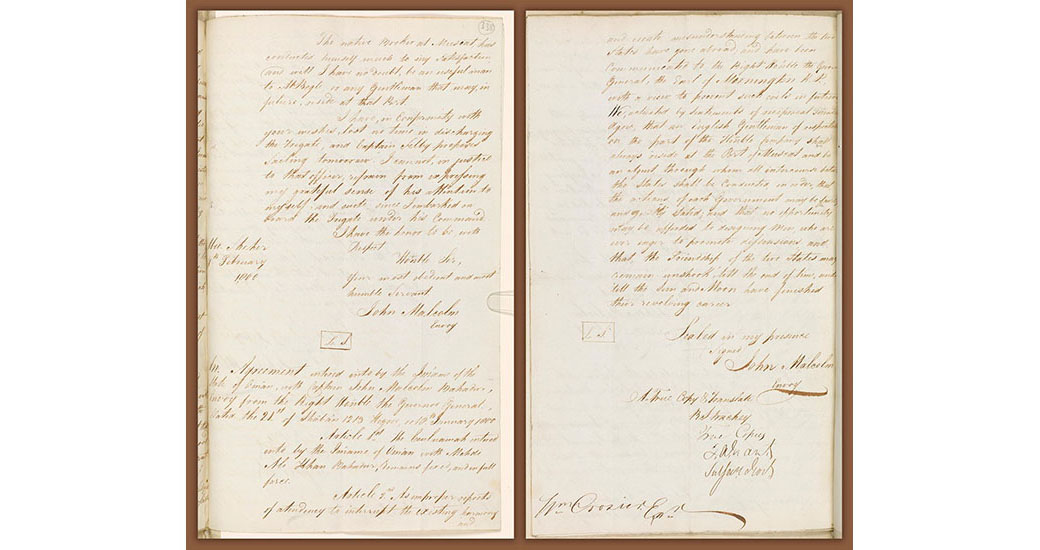 The native Broker at Muscat has
conducted himself much to my satisfaction
and will I have no doubt, be an useful man
to Mr Bogle or any Gentleman that may, in
future, reside at that Port.
I have, in conformity with
your wishes, lost no time in discharging
the Frigate, and Captain Selby proposes
Sailing tomorrow. I cannot, in justice
to that officer, refrain from expressing
my grateful sense of his attention to
myself and suite since I embarked on
board the Frigate under his Command
I have the honor to be with
Respect
Honble Sir,
Your most obedient and most
humble Servant
John Malcolm
Envoy
February
1800
L. S.
Agreement entered into by the Imaum of the
State of Oman, with Captain John Malcolm Bahadur,
Envoy from the Right Honble the Governor General,
dated the 21st of Shaban 1213 Hegira or 18th January 1800
Article 1st The Cowlnamah entered
into by the Imaum of Oman with Mehdi
Ali Khan Bahadur, remains fixed, and in full
force.
Article 2d As improper reports
of a tendency to interrupt the existing harmony
and
and create misunderstanding between the two
States have gone abroad, and have been
Communicated to the Right Honble the Governor
General, the Earl of Mornington K. P.
with a view to prevent such evils in future
We, actuated by sentiments of reciprocal
agree, that an English Gentleman of respectability
on the part of the Honble Company shall
always reside at the Port of Muscat and be
an Agent through whom all intercourse between
the States shall be Conducted in order, that
the actions of each Government may be fairly
and justly stated, and that no opportunity
may be afforded to designing Men, who are
ever eager to promote dissensions, and
that the Friendship of the two States may
remain unshook till the end of time, and
till the Sun and Moon have finished
their revolving career
L. S.
Sealed in my presence
Signed
John Malcolm
Envoy
A True Copy & Translate
True Copies
Wm Crozier Esqr